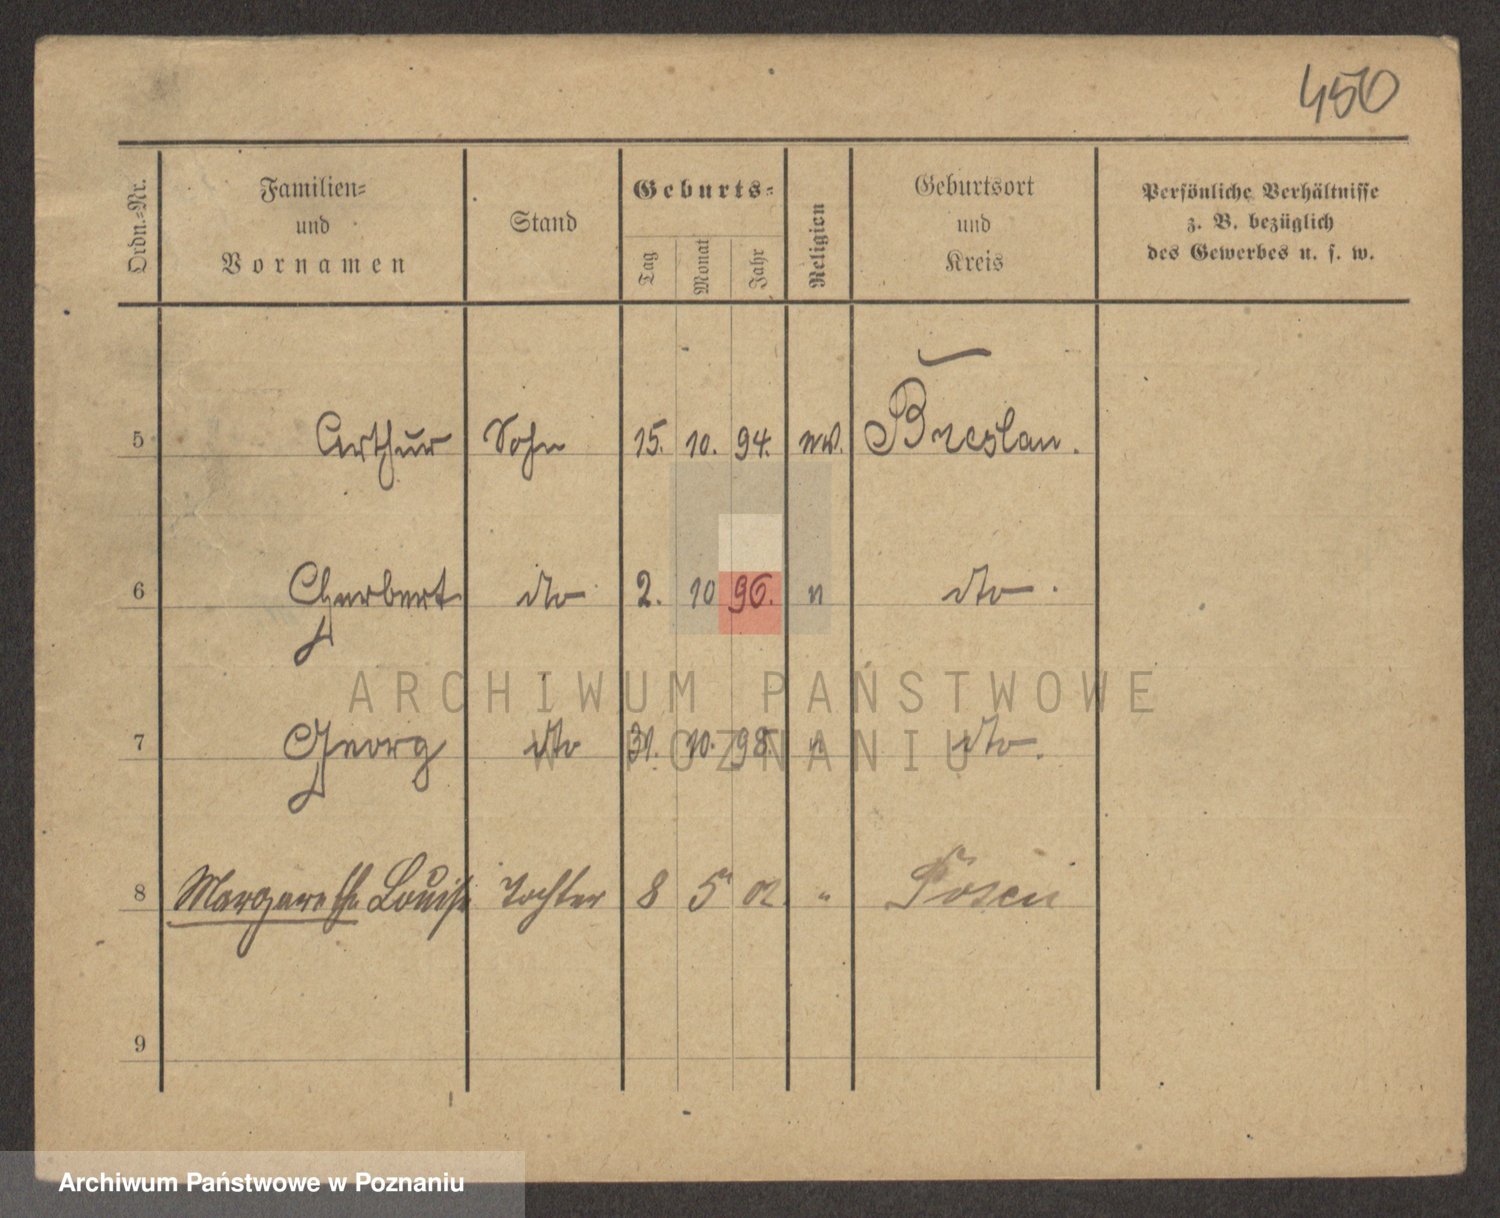 450
Ordn.=Nr.
Familien=
und
Vornamen
Stand
Geburts=
Tag
Monat
Jahr
Religion
Geburtsort
und
Kreis
Persönliche Verhältnisse
z. B. bezüglich
des Gewerbes u. s. w.
5 Arthur Sohn 15. 10. 94. ev. Breslau.
6 Herbert dto 2. 10 96. " dto.
7 Georg dto 31. 10. 98. " dto.
8 Margarethe Louise Tochter 8 5 02 " Posen
9
ARCHIWUM PAŃSTWOWE
W POZNANIU
Archiwum Państwowe w Poznaniu